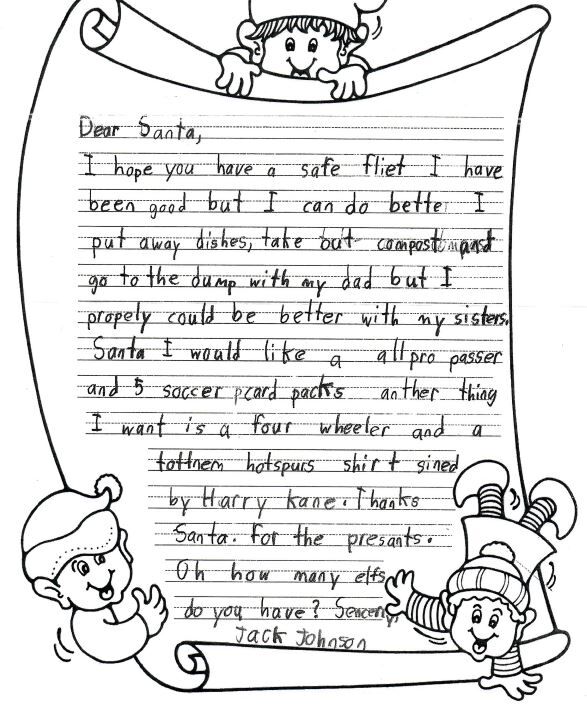 Dear Santa,
I hope you have a safe fliet I have
been good but I can do bette I
put away dishes, take out compost and
go to the dump with my dad but I
propely could be better with my sisters.
Santa I would like a allpro passer
and 5 soccer pcard packs anther thing
I want is a four wheeler and a
tottnem hotspurs shirt sined
by Harry Kane. Thanks
Santa. For the presants.
Oh how many elfs
do you have? Sencerly,
Jack Johnson